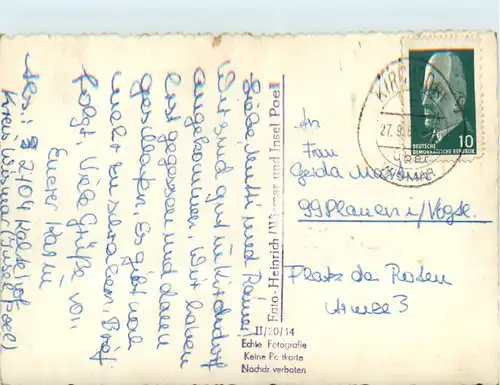 Liebe Mutti und Rainer!
Wir sind gut in Kirchdorf
angekommen. Wir haben
erst gegessen und dann
geschlafen. Es gibt noch
mehr zu schreiben. Brief
folgt. Viele Grüße von
Eurer Karin
2404 Kaltenhof
Kreis Wismar (Insel Poel)
Foto-Heinrich Wismar und Insel Poel
II/20/14
Echte Fotografie
Keine Postkarte
Nachdr. verboten
KIRCHDORF
27.9.6
WISMAR
10
DEUTSCHE
DEMOKRATISCHE REPUBLIK
An
Frau
Gerda
99 Plauen i/Vogtl.
Platz der Roten
Armee 3